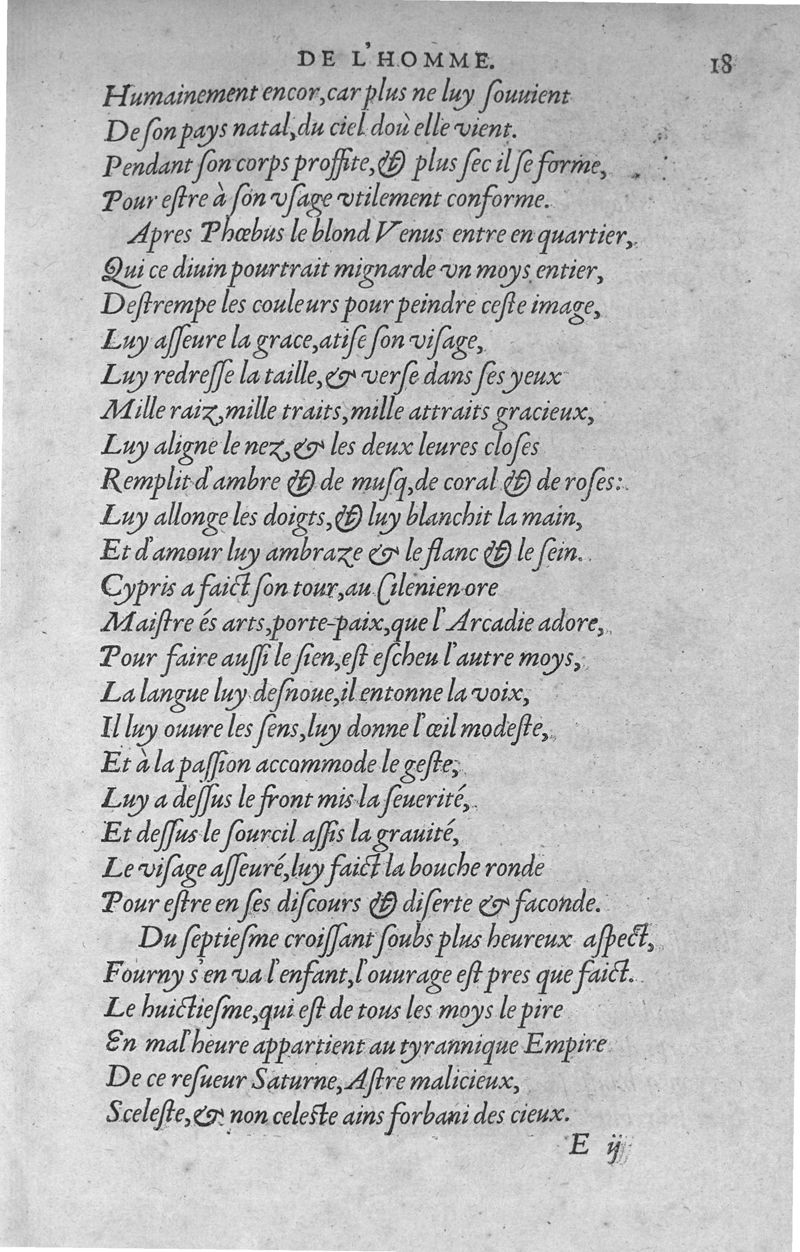 DE L'HOMME. 18
Humainement encor, car plus ne luy ſouuient
De ſon pays natal, du ciel doù elle vient.
Pendant ſon corps proffite, & plus ſec il ſe forme,
Pour eſtre à ſon vſage vtilement conforme.
Apres Phœbus le blond Venus entre en quartier,
Qui ce diuin pourtrait mignarde vn moys entier,
Deſtrempe les couleurs pour peindre ceſte image,
Luy aſſeure la grace, atiſe ſon viſage,
Luy redreſſe la taille, & verſe dans ſes yeux
Mille raiz, mille traits, mille attraits gracieux,
Luy aligne le nez, & les deux leures cloſes
Remplit d'ambre & de muſq, de coral & de roſes:
Luy allonge les doigts, & luy blanchit la main,
Et d'amour luy ambraze & le flanc & le ſein.
Cypris a faict ſon tour, au Cilenien ore
Maiſtre és arts, porte-paix, que l'Arcadie adore,
Pour faire auſſi le ſien, eſt eſcheu l'autre moys,
La langue luy deſnoue, il entonne la voix,
Il luy ouure les ſens, luy donne l'œil modeſte,
Et à la paſſion accommode le geſte,
Luy a deſſus le front mis la ſeuerité,
Et deſſus le ſourcil aſſis la grauité,
Le viſage aſſeuré, luy faict la bouche ronde
Pour eſtre en ſes diſcours & diſerte & faconde.
Du ſeptieſme croiſſant ſoubs plus heureux aſpect,
Fourny s'en va l'enfant, l'ouurage eſt pres que faict.
Le huictieſme, qui eſt de tous les moys le pire
En mal'heure appartient au tyrannique Empire
De ce reſueur Saturne, Aſtre malicieux,
Sceleſte, & non celeſte ains forbani des cieux.
E ij